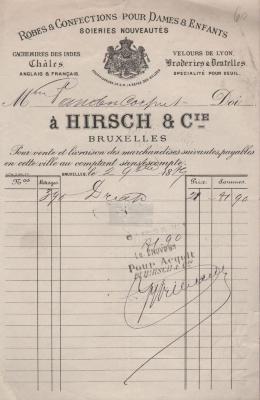 ROBES & CONFECTIONS POUR DAMES & ENFANTS
SOIERIES NOUVEAUTÉS
CACHEMIRES DES INDES
Châles
ANGLAIS & FRANÇAIS.
VELOURS DE LYON.
Broderies & Dentelles.
SPÉCIALITÉ POUR DEUIL.
Mme Doit
à HIRSCH & CIE
BRUXELLES
Pour vente et livraison des marchandises suivantes, payables
en cette ville au comptant sans escompte.
BRUXELLES, le 2 9bre 1879
Nos Métrages Prix Sommes
3/90 Drap 21 81.90
81.90
Pour Acquit
HIRSCH & Cie